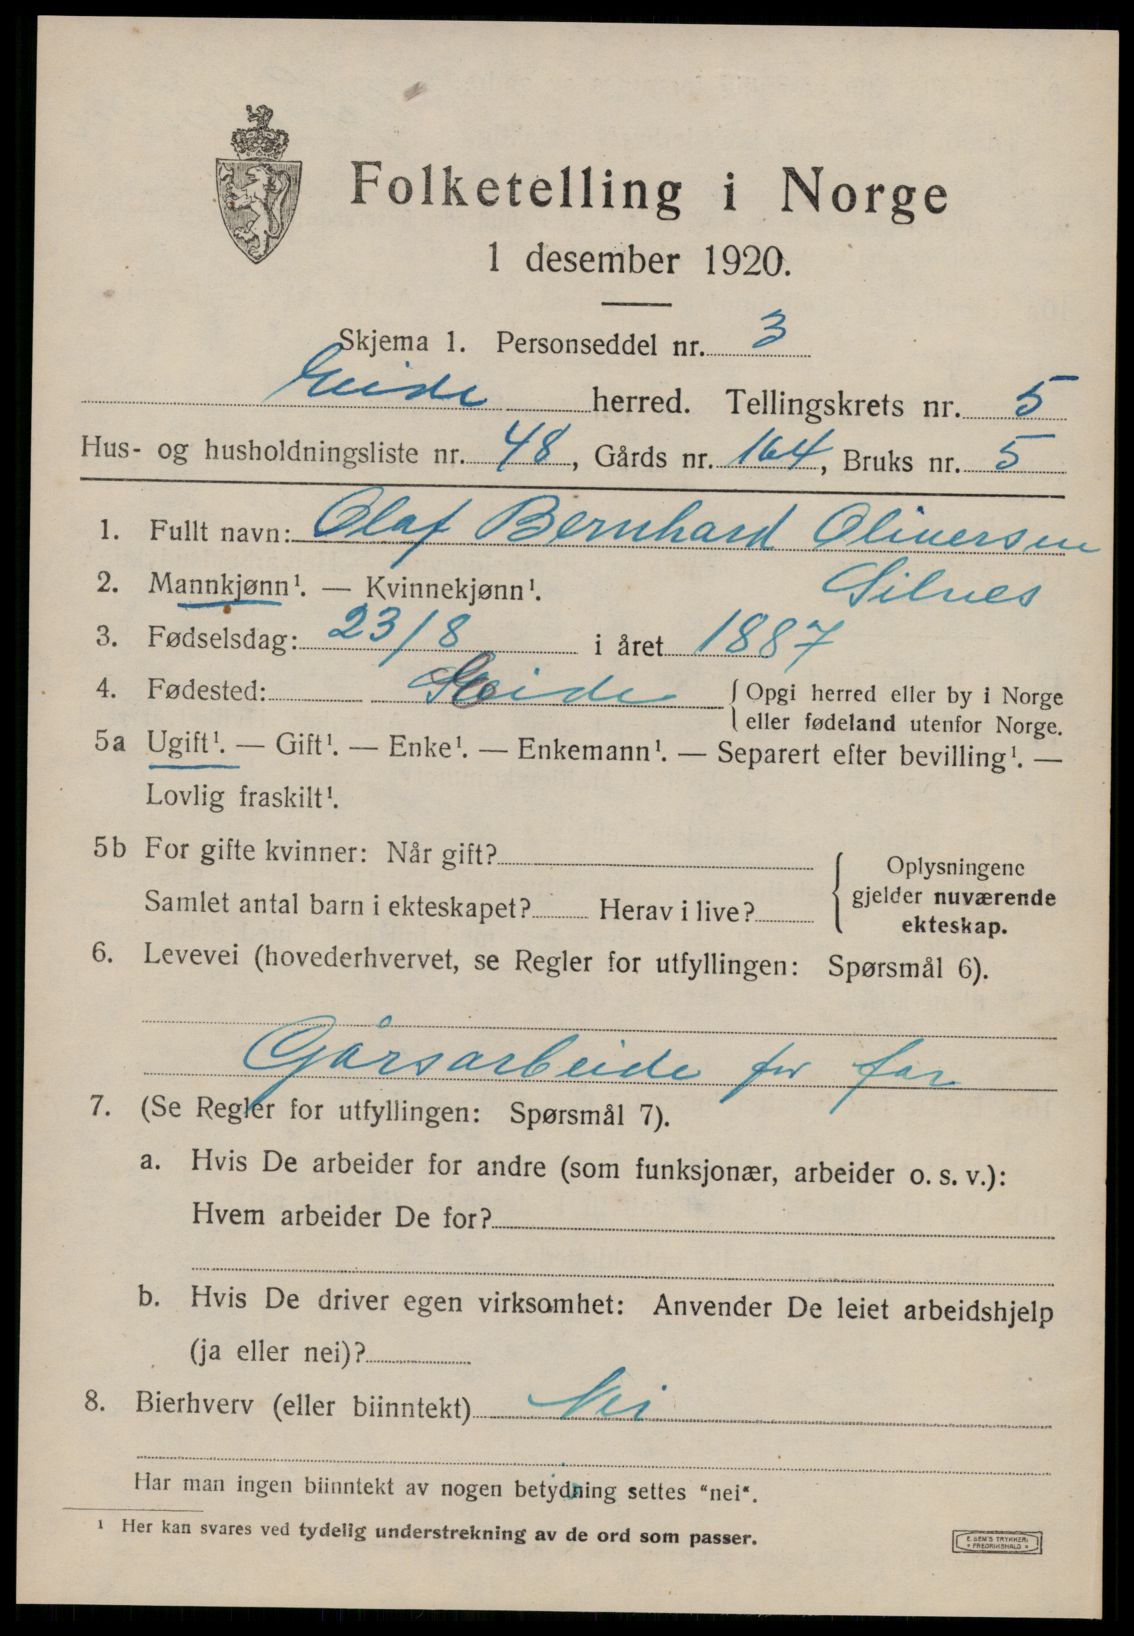 Folketelling i Norge
1 desember 1920.
Skjema 1. Personseddel nr. 3
Eide herred. Tellingskrets nr. 5
Hus- og husholdningsliste nr. 48, Gårds nr. 164, Bruks nr. 5
1. Fullt navn: Olaf Bernhard Oliversen
Silnes
2. Mannkjønn¹. — Kvinnekjønn¹.
3. Fødselsdag: 23/8 i året 1887
4. Fødested: Eide { Opgi herred eller by i Norge
eller fødeland utenfor Norge.
5a Ugift¹. — Gift¹. — Enke¹. — Enkemann¹. — Separert efter bevilling¹. —
Lovlig fraskilt¹.
5b For gifte kvinner: Når gift?
Samlet antal barn i ekteskapet? Herav i live?
{ Oplysningene
gjelder nuværende
ekteskap.
6. Levevei (hovederhvervet, se Regler for utfyllingen: Spørsmål 6).
Gårsarbeide for far
7. (Se Regler for utfyllingen: Spørsmål 7).
a. Hvis De arbeider for andre (som funksjonær, arbeider o. s. v.):
Hvem arbeider De for?
b. Hvis De driver egen virksomhet: Anvender De leiet arbeidshjelp
(ja eller nei)?
8. Bierhverv (eller biinntekt) Nei
Har man ingen biinntekt av nogen betydning settes "nei".
¹ Her kan svares ved tydelig understrekning av de ord som passer.
E. SEM'S TRYKKERI
FREDRIKSHALD